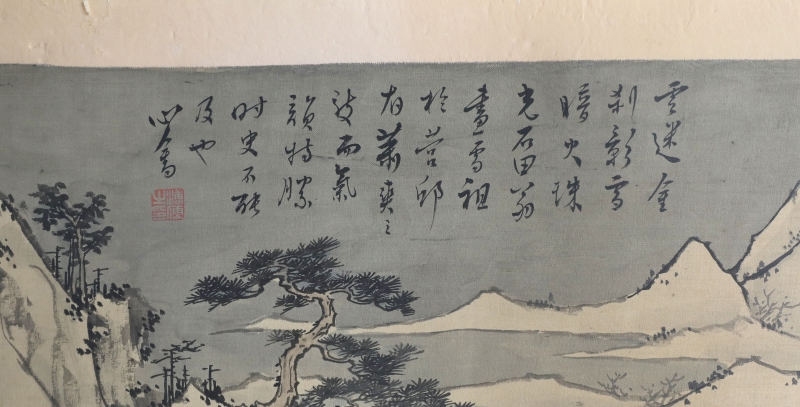 雲迷金
刹影雪
暗火珠
光石田翁
畫雪祖
於營邱
有蕭爽之
致而氣
韻特勝
時史不能
及也
心畬